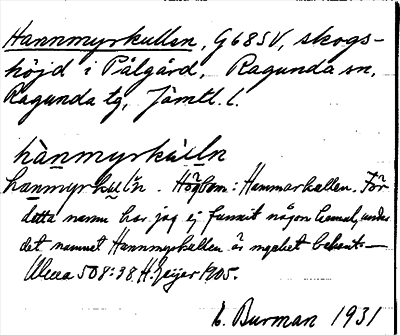 Hannmyrkullen, G68SV, skogs-
höjd i Pålgård, Ragunda sn,
Ragunda tg, Jämtl. l.
hànmyrkùlln
hanmyrkulln. Högbom: Hammarkullen. För
detta namn har jag ej funnit någon hemul, under
det namnet Hannmyrkullen är mycket bekant.—
Ulma 508:38. H. Geijer 1905.
E. Burman 1931